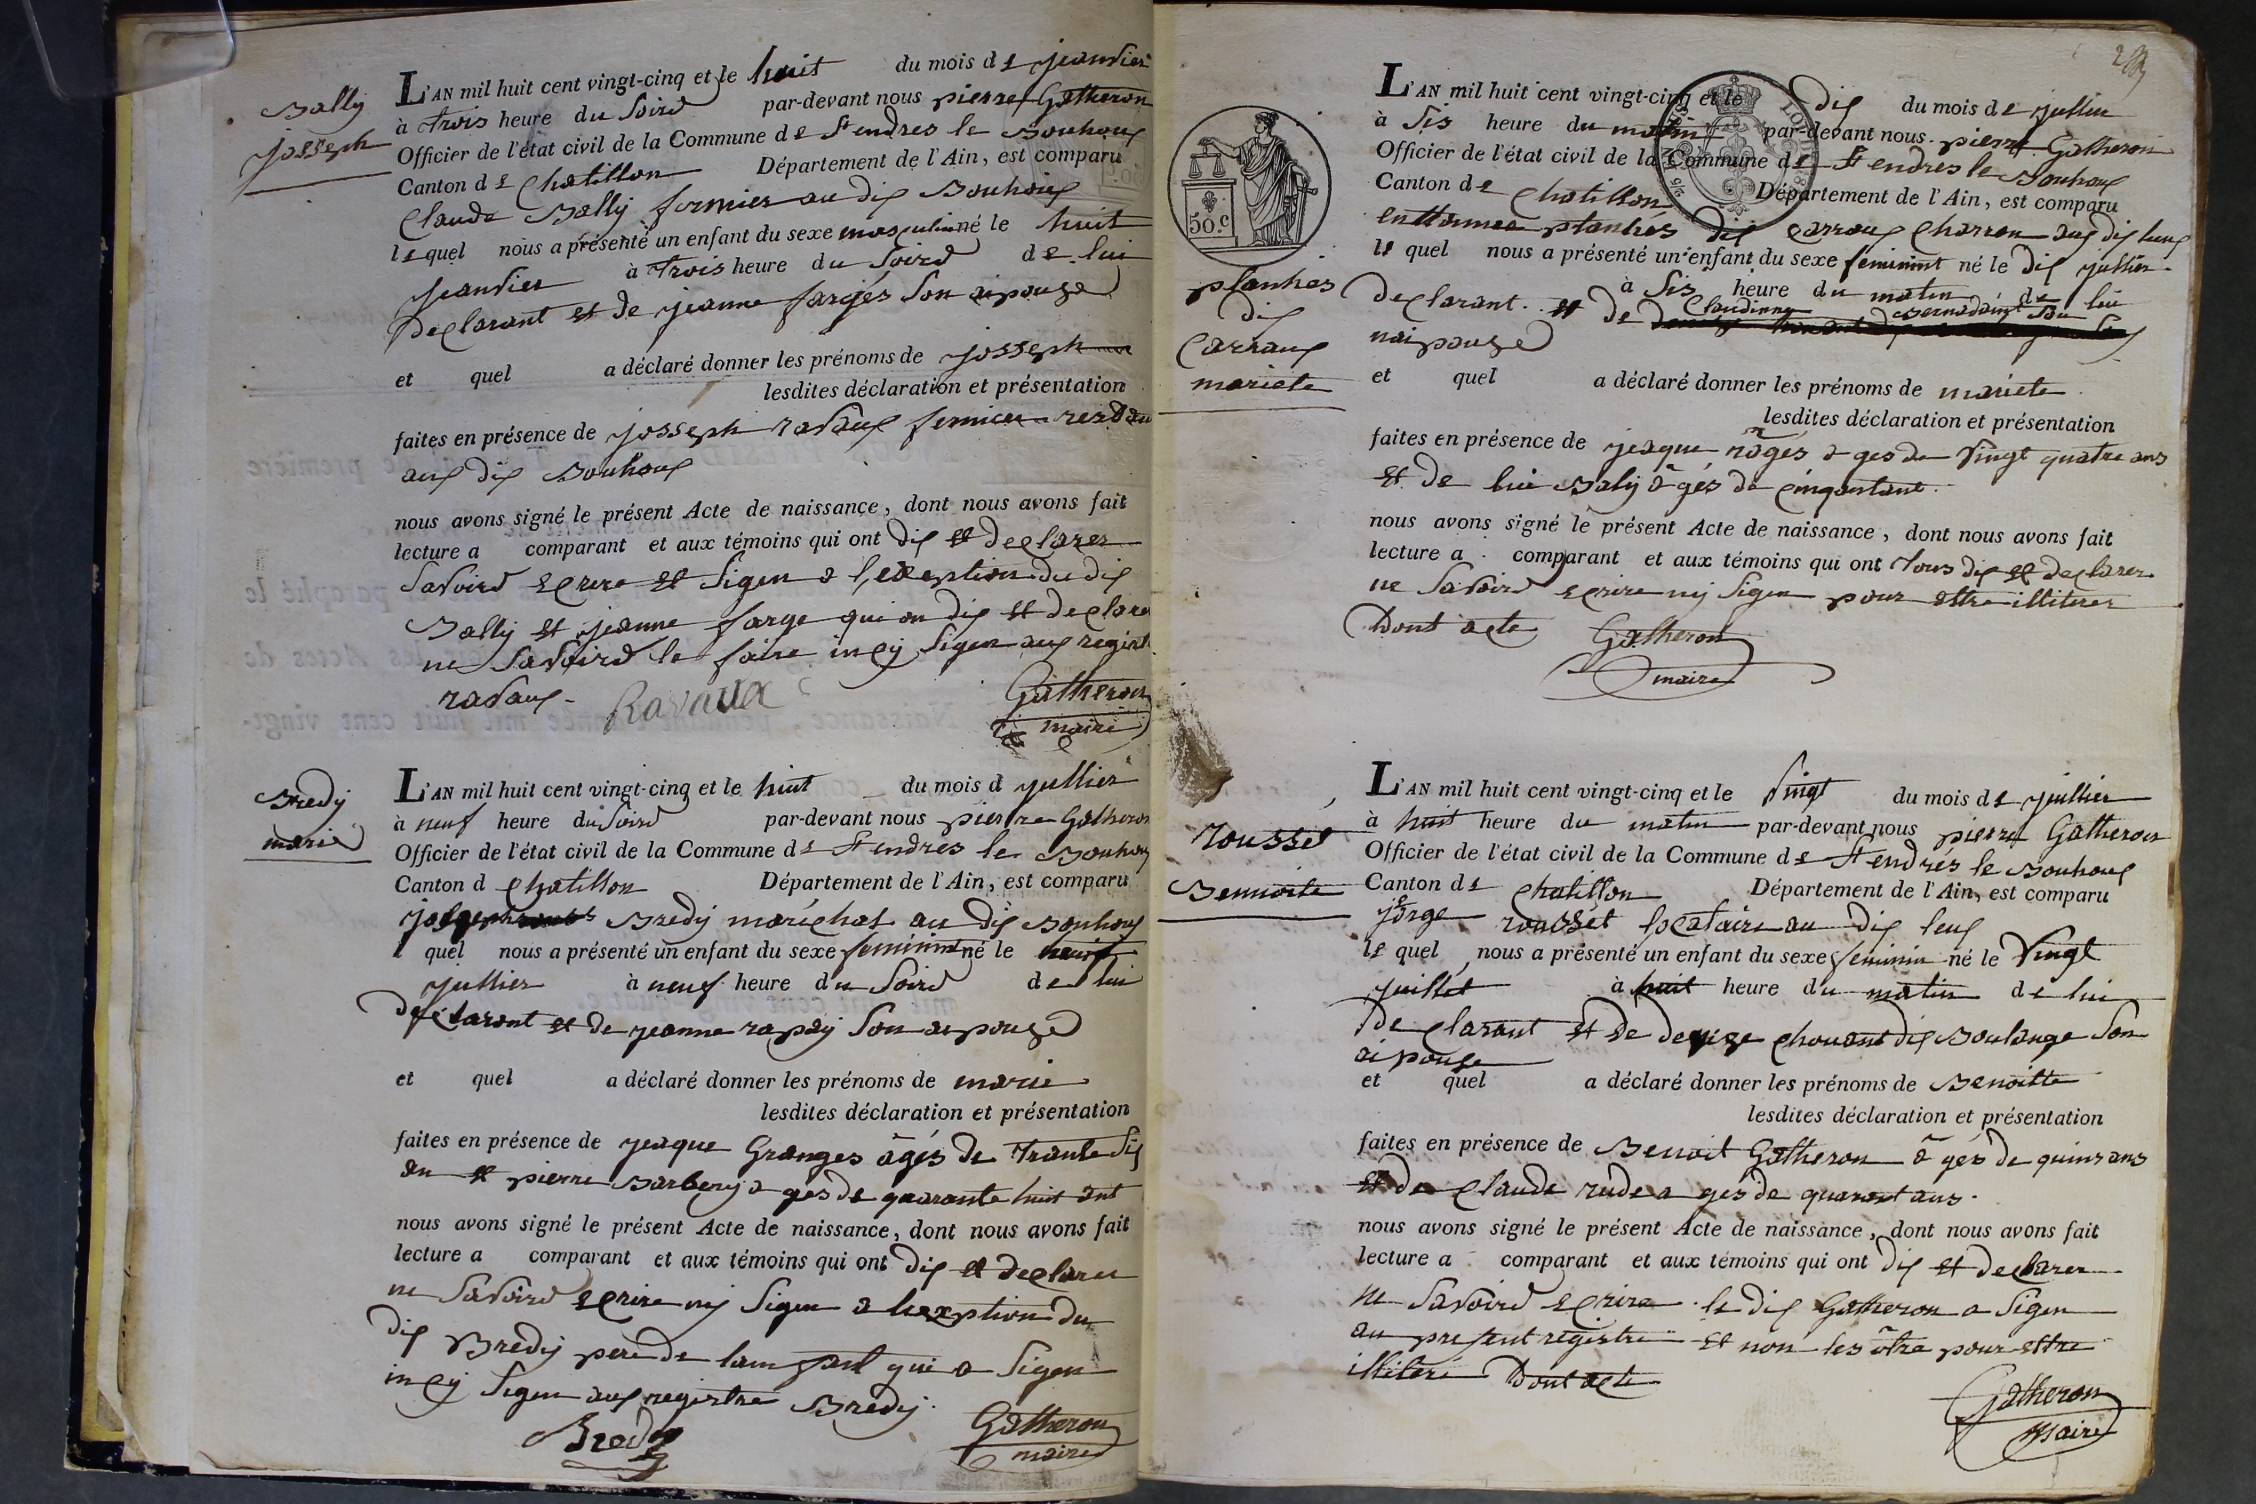 Bally
josseph
L'AN mil huit cent vingt-cinq et le huit du mois de jeanvier
à trois heure du soird par-devant nous pierre Gatheron
Officier de l'état civil de la Commune de St endres le Bouhoux
Canton de Chatillon Département de l'Ain, est comparu
Claude Bally fermier au dix Bouhoux
lequel nous a présenté un enfant du sexe masculin né le huit
jeanvier à trois heure du soird de lui
declarant et de jeanne farges son aipouse
et quel a déclaré donner les prénoms de josseph
lesdites déclaration et présentation
faites en présence de josseph ravaux fermier
aux dix Bouhoux
nous avons signé le présent Acte de naissance, dont nous avons fait
lecture a comparant et aux témoins qui ont dix et declarer
savoird ecrire et sigen a l'exeption du dix
Bally et jeanne farge qui on dix et declare
ne savoird le faire incy sigen aux
ravaux Ravaux Gatheron
maire
Bredy
marie
L'AN mil huit cent vingt-cinq et le huit du mois d jullier
à neuf heure du soird par-devant nous pierre Gatheron
Officier de l'état civil de la Commune de St endres le Bouhoux
Canton d Chatillon Département de l'Ain, est comparu
Bredy maréchal au dix Bouhoux
quel nous a présenté un enfant du sexe feminint né le huit
jullier à neuf heure du soird de lui
declarant et de jeanne rapay son aipouse
et quel a déclaré donner les prénoms de marie
lesdites déclaration et présentation
faites en présence de jeaque Granges âgés de trante six
an et pierre Barbery a ges de quarante huit ant
nous avons signé le présent Acte de naissance, dont nous avons fait
lecture a comparant et aux témoins qui ont dix et declarer
ne savoird ecrire ny sigen a lexeption du
dix Bredy pere de lanfant qui a sigen
incy sigen aux registre Bredy
Bredy Gatheron
maire
50.c
planhes
dix
Carraux
mariete
L'AN mil huit cent vingt-cinq et le dix du mois de jullier
à sis heure du matin par-devant nous pierre Gatheron
Officier de l'état civil de la Commune de St endres le Bouhoux
Canton de Chatillon Département de l'Ain, est comparu
planhés dix Carraux Charron aux dix lieux
le quel nous a présenté un enfant du sexe feminint né le dix jullier
à sis heure du matin de lui
declarant et de Claudinne son
naipouse
et quel a déclaré donner les prénoms de mariete
lesdites déclaration et présentation
faites en présence de jeaque a ges de vingt quatre ans
et de lui Baly âgés de cinqantant
nous avons signé le présent Acte de naissance, dont nous avons fait
lecture a comparant et aux témoins qui ont tous dix et declarer
ne savoird ecrire ny sigen pour ettre illiterer
Dont acte Gatheron
maire
rousset
Bennoite
L'AN mil huit cent vingt-cinq et le vingt du mois de juillier
à huit heure du matin par-devant nous pierre Gatheron
Officier de l'état civil de la Commune de St endrés le Bouhoux
Canton de Chatillon Département de l'Ain, est comparu
jorge rousset locataire au dix leux
le quel nous a présenté un enfant du sexe feminin né le vingt
juillet à huit heure du matin de lui
declarant et de denise chouant dix Boulange son
aipouse
et quel a déclaré donner les prénoms de Benoitte
lesdites déclaration et présentation
faites en présence de Benoit Gatheron âgés de quinz ans
et de Claude rude a gés de quarant ans
nous avons signé le présent Acte de naissance, dont nous avons fait
lecture a comparant et aux témoins qui ont dix et declarer
ne savoird ecrire le dix Gatheron a sigen
au present registre et non les otre pour ettre
illiteré Dont acte
Gatheron
maire